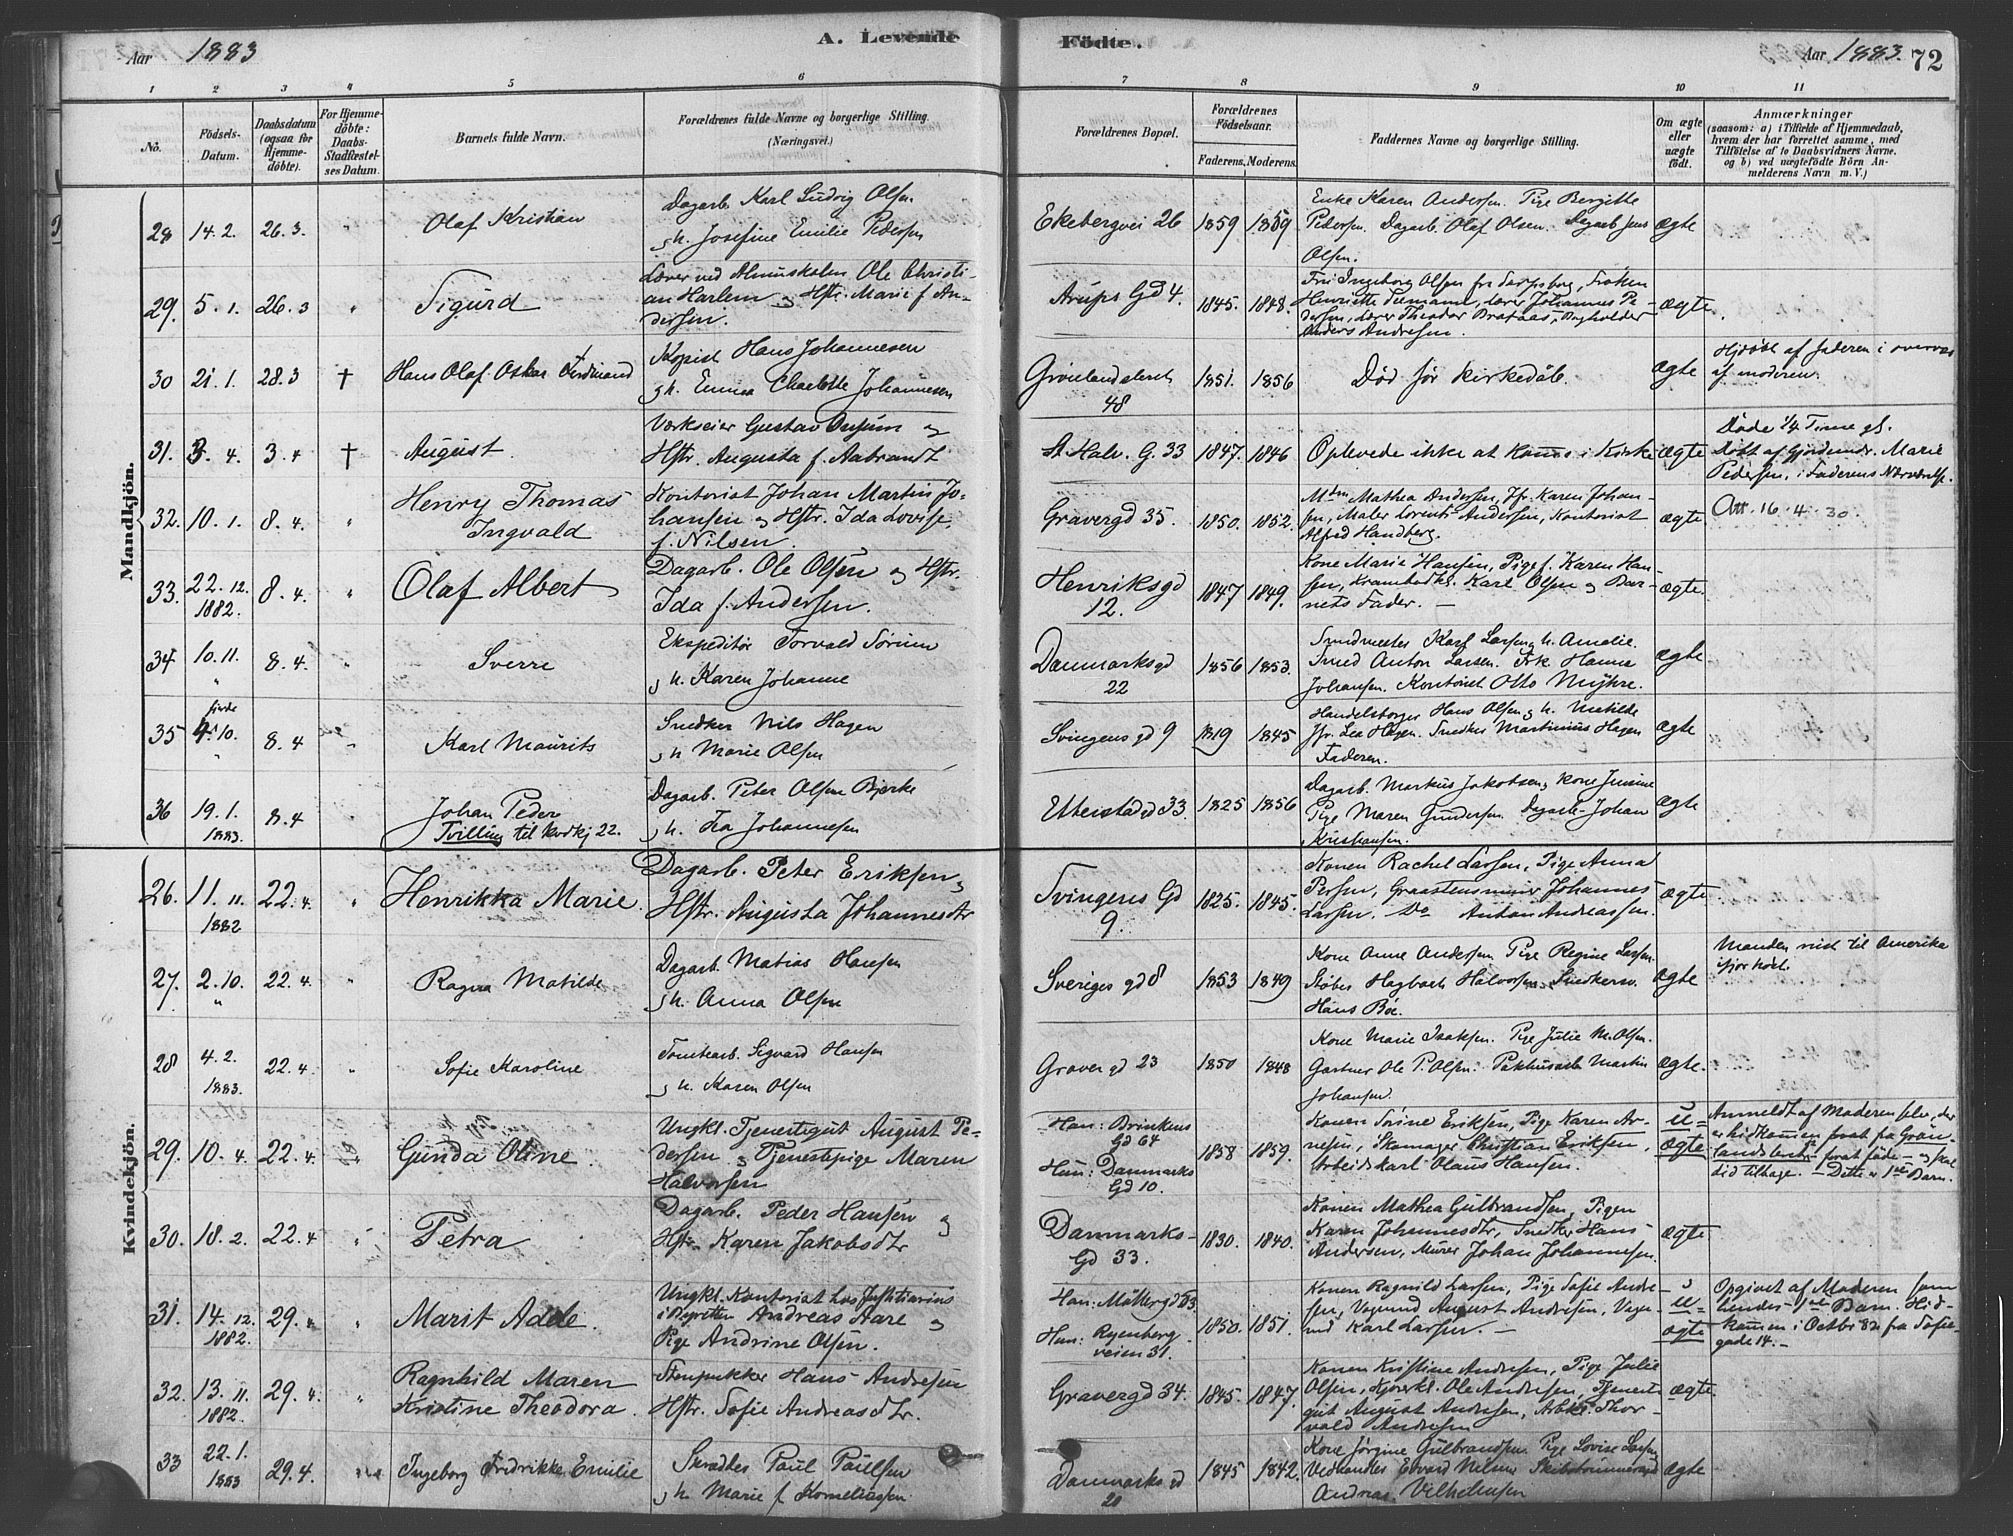 Aar 1883
A. Levende Fødte.
Aar 1883. 72
1 2 3 4 5 6 7 8 9 10 11
No.
Födsels-
Datum.
Daabsdatum
(ogsaa for
Hjemme-
döbte).
For Hjemme-
döbte:
Daabs-
Stadfæstel-
ses Datum.
Barnets fulde Navn.
Forældrenes fulde Navne og borgerlige Stilling.
(Næringsvei.)
Forældrenes Bopæl.
Forældrenes
Födselsaar.
Faderens. Moderens.
Faddernes Navne og borgerlige Stilling.
Om ægte
eller
uægte
født.
Anmærkninger
(saasom: a) i Tilfælde af Hjemmedaab,
hvem der har forrettet samme, med
Tilföielse af to Daabsvidners Navne.
og b) ved uægtefödte Börn An-
melderens Navn m. V.)
Mandkjön.
28 14.2. 26.3. " Olaf Kristian
Dagarb. Karl Ludvig Olsen
og h. Josefine Emilie Pedersen
Ekebergvei 26 1859 1859
Enke Karen Andersen. Pige Bergitte
Pedersen. Dagarb. Olaf Olsen. Dagarb Jens
Olsen.
ægte
29. 5.1. 26.3 " Sigurd
Lærer ved Almuskolen Ole Christi-
an Harlem og Hstr. Marie f. An-
dersen.
Arups Gd 4. 1845. 1848.
Fru Ingeborg Olsen fra Sarpsborg, Frøken
Henriette Tiemann, Lærer Johannes Pe-
dersen, Lærer Theodor Brataas, Bogholder
Anders Andresen.
ægte.
30 21.1. 28.3 † Hans Olaf Oskar Ferdinand
Kopist Hans Johannesen
og h. Emma Charlotte Johannesen
Grønlandsleret
48
1851. 1856
Død før kirkedåb.
ægte
Hjdøbt af faderen i overvær
af moderen.
31. 3.4. 3.4 † August.
Værkseier Gustav og
Hstr. Augusta f. Aabrandt
St. Halv. G. 33 1847. 1846
Oplevede ikke at komme i Kirke
ægte
Døde 1/4 Time gl.
Døbt af Gjordemdr. Marie
Pedersen, i Faderens Nærværelse.
32. 10.1. 8.4. " Henry Thomas
Ingvald
Kontorist Johan Martin Jo-
hansen og Hstr. Ida Lovise
f. Nilsen.
Gravergd 35. 1850. 1852.
Mdm Mathea Andersen, Jfr. Karen Johan-
sen, Maler Lorents Andersen, Kontorist
Alfred Handberg.
ægte
Att. 16.4.30.
33. 22.12.
1882.
8.4. " Olaf Albert
Dagarb. Ole Olsen og Hstr.
Ida f. Andersen.
Henriksgd
12.
1847 1849.
Kone Marie Hansen, Pige f. Karen Han-
sen, Karl Olsen og Bar-
nets Fader. —
ægte.
34 10.11.
"
8.4. " Sverre
Ekspeditør Torvald Sørum
og h. Karen Johanne
Danmarksgd
22
1856 1853.
Smedmester Karl Larsen og h. Amalie.
Smed Anton Larsen. Frk. Hanna
Johansen. Kontorist Otto Myhre.
ægte
35 4.10.
"
8.4 " Karl Maurits
Snedker Nils Hagen
og h Marie Olsen
Svingensgd 9 1819 1845
Handelsborger Hans Olsen og h. Matilde
Jfr. Lea Hagen. Snedker Martinius Hagen
Faderen.
ægte
36 19.1.
1883.
8.4 Johan Peder
Tvilling til kvdkj 22.
Dagarb. Peter Olsen Bjerke
og h. Johannesen
Etterstadgd 33. 1825 1856
Dagarb. Markus Jakobsen og kone Jensine
Pige Maren Gundersen Dagarb. Johan
Kristiansen.
ægte
Kvindekjön.
26. 11.11.
1882
22.4. " Henrikka Marie.
Dagarb. Peter Eriksen og
Hstr. Augusta Johannesdtr
Svingens Gd
9.
1825. 1845.
Konen Rachel Larsen, Pige Anna
Persen, Graastensmurer Johannes
Larsen. Do Anton Andreassen.
ægte.
27. 2.10.
"
22.4. " Ragna Matilde
Dagarb. Matias Hansen
og h. Anna Olsen
Sveriges gd 8 1853 1849
Kone Anne Andersen Pige Regine Larsen
Støber Hagbart Halvorsen Snedkersv.
Hans Bøe.
ægte
Manden reist til Amerika
ifjor høst.
28 4.2.
1883.
22.4. " Sofie Karoline
Tomtearb. Sigvard Hansen
og h. Karen Olsen
Graver gd 23 1850 1848
Kone Marie Isaksen. Pige Julie M. Olsen.
Gartner Ole P. Olsen. Pakhusarb. Martin
Johansen.
ægte.
29. 10.4. 22.4. " Gunda Oline
Ungkl. Tjenestegut August Pe-
dersen og Tjenestepige Maren
Halvorsen
Han: Brinkens
Gd 64
Hun: Danmarks
Gd 10.
1858 1859.
Konen Sørine Eriksen, Pige Karen Ar-
nesen, Skomager Christian Eriksen,
Arbeidskarl Olaus Hansen.
u-
ægte
Anmeldt af Moderen selv, der
er hidkommen forat fra Grøn-
landsleret forat føde — og skal
did tilbage. — Dette er 1ste Barn.
30. 18.2. 22.4 " Petra
Dagarb. Peder Hansen og
Hstr. Karen Jakobsdtr
Danmarks-
Gd 33.
1830. 1840.
Konen Mathea Gulbrandsen, Pigen
Karen Johannesdtr, Snedker Hans
Andersen, Murer Johan Johannesen.
ægte
31. 14.12.
1882.
29.4 " Marit Adele.
Ungkl. Kontorist hos Justitiarius
i Andreas Aare og
Pige Andrine Olsen.
Han: Møllergd 53.
Hun: Ryenberg-
veien 31.
1850. 1851.
Konen Ragnild Larsen, Pige Sofie Andre-
sen, Vognmd August Andresen, Vogn-
md Karl Larsen. —
u-
ægte
Opgivet af Moderen som
hendes 1ste Barn. Hid-
kommen i Octbr 82 fra Sofie-
gade 14. —
32. 13.11.
1882.
29.4. " Ragnhild Maren
Kristine Theodora.
Stenpukker Hans Andresen
Hstr. Sofie Andreasdtr.
Gravergd 34. 1845. 1847.
Konen Kristine Andresen, Pige Julie
Olsen, Kjørekl. Ole Andresen, Tjeneste-
gut August Andresen, Arbkr. Thor-
vald Andresen
ægte
33 22.1.
1883
29.4. Ingeborg Fredrikke Emilie
Skrædder Paul Paulsen
og h. Marie f. Korneliussen
Danmarks gd
20
1845 1842.
Kone Jørgine Gulbrandsen Pige Lovise Larsen
Vedhandler Edvard Nilsen Skibstømmermand
Andreas Vilhelmsen
ægte